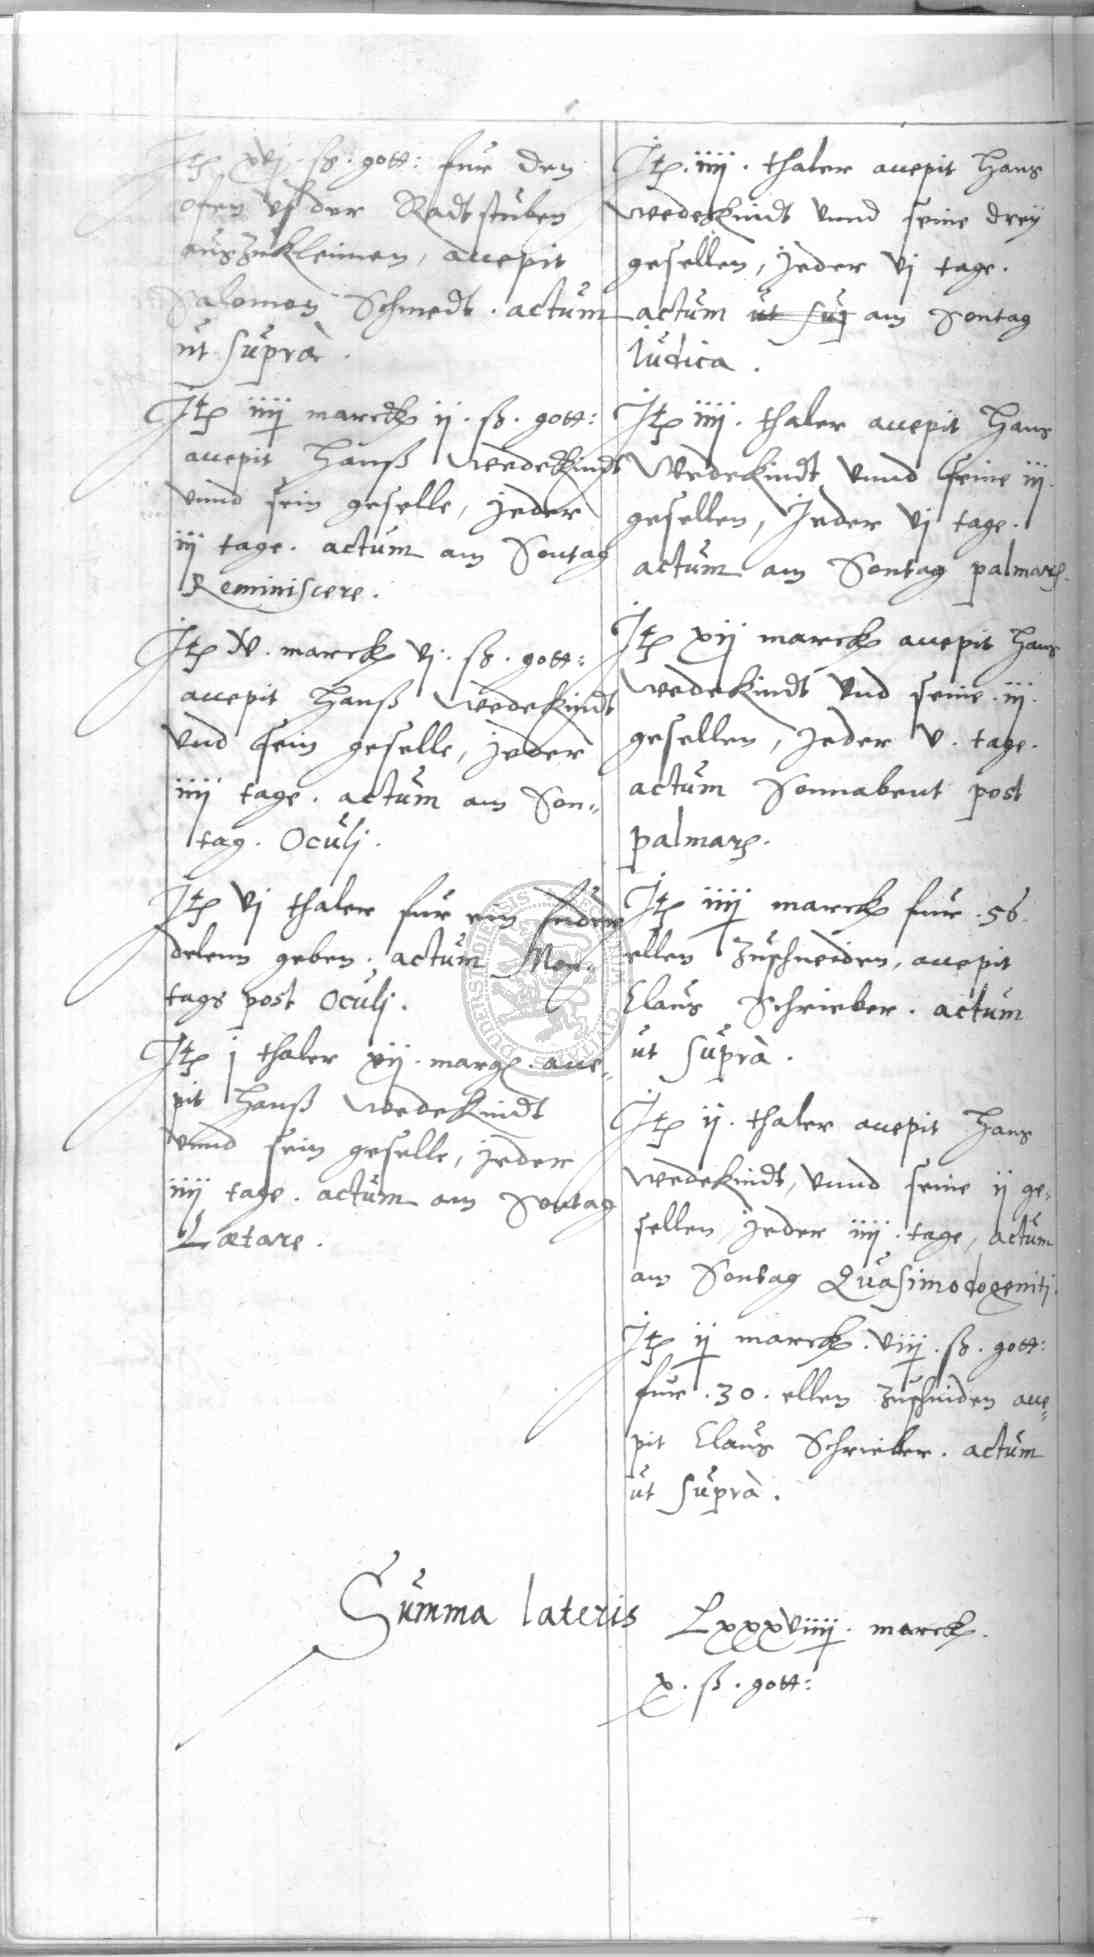 Itȩ xvj. ß. gott: fur den
ofen uf der Radtstuben
auszukleimen, accepit
Salomon Schmedt. actum
ut supra.
Itȩ iiij marck ij. ß. gott:
accepit Hanß Wedekindt
vnnd sein geselle, jeder
iij tage. actum am Sontag
Reminiscere.
Itȩ iv. marck vj. ß. gott:
accepit Hanß Wedekindt
vnd sein geselle, jeder
iiij tage. actum am Son=
tag. Oculj.
Itȩ vj thaler fur ein fuder
delenn geben. actum Mon=
tags post Oculj.
Itȩ j thaler xij. marg. acce=
pit Hanß Wedekindt
vnnd sein geselle, jeder
iiij tage. actum am Sontag
Lætare.
Itȩ. iiij. thaler accepit Hans
Wedekindt vnnd seine dreÿ
gesellen, jeder vj tage.
actum ut sup am Sontag
Iudica.
Itȩ iiij. thaler accepit Hans
Wedekindt vnnd seine iij.
gesellen, Jeder vj tage.
actum am Sontag palmarȩ.
Itȩ xij marck accepit Hans
Wedekindt vnd seine. iij.
gesellen, Jeder v. tage.
actum Sonnabent post
palmarȩ.
Itȩ iiij marck fur. 56.
ellen zuschneiden, accepit
Claus Schrieber. actum
ut supra.
Itȩ ij. thaler accepit Hans
Wedekindt, vnnd seine ij ge=
sellen Jeder iiij. tage, actum
am Sontag Quasimodogeniti.
Itȩ ij marck. viij. ß. gott:
fur. 30. ellen zuschniden acce=
pit Claus Schrieber. actum
ut supra.
Summa lateris Lxxxviiij. marck.
x. ß. gott: